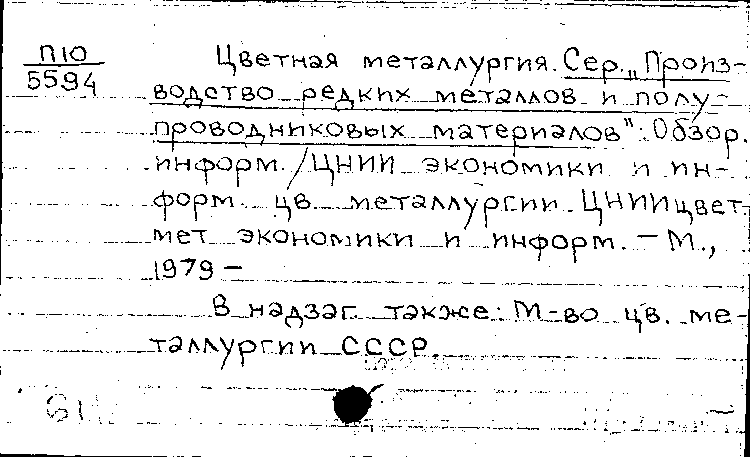 П10
5594
Цветная металлургия. Сер. „Произ-
водство редких металлов и полу-
проводниковых материалов": Обзор.
информ. / ЦНИИ экономики и ин-
форм. цв. металлургии. ЦНИИцвет
мет экономики и информ. – М.,
1979 –
В надзаг. также: М-во цв. ме-
таллургии СССР.